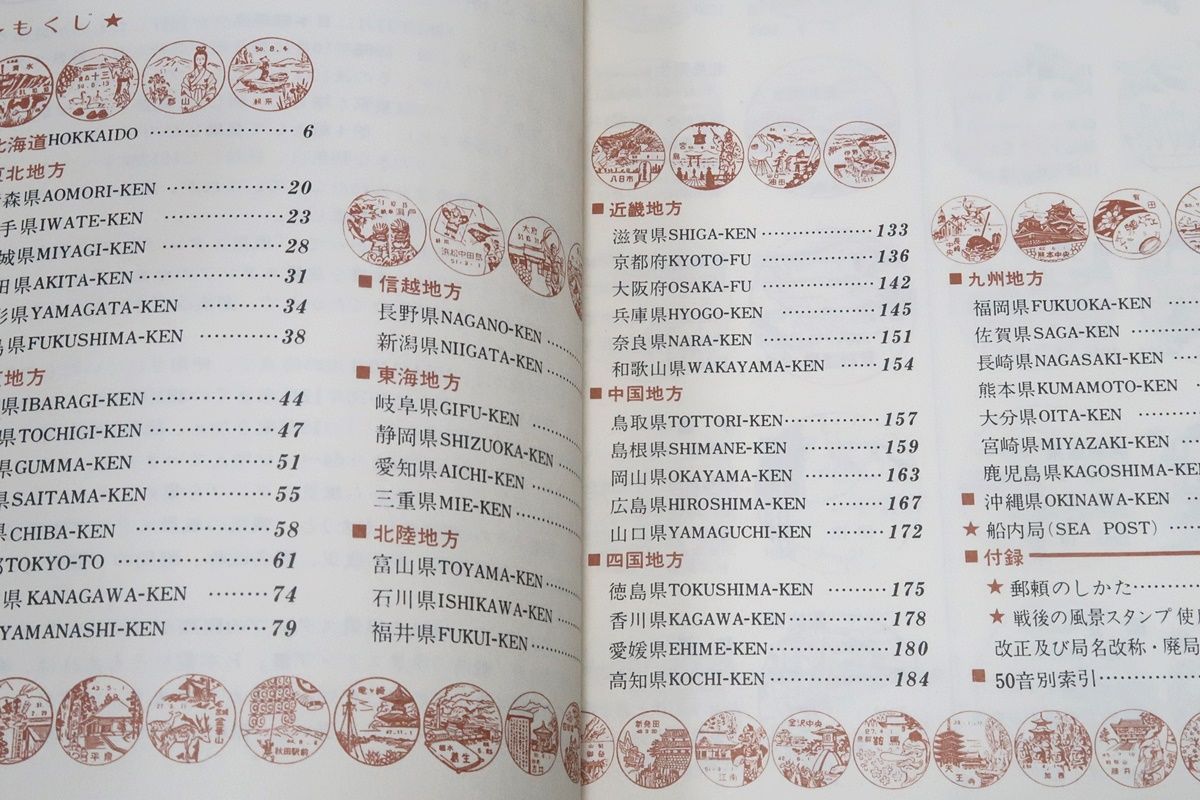 もくじ★
北海道HOKKAIDO ……………… 6
東北地方
森県AOMORI-KEN ……………20
手県IWATE-KEN ……………23
城県MIYAGI-KEN ……………28
田県AKITA-KEN ………………31
形県YAMAGATA-KEN …………34
島県FUKUSHIMA-KEN ………38
地方
県IBARAGI-KEN ………………44
県TOCHIGI-KEN ………………47
県GUMMA-KEN ………………51
県SAITAMA-KEN ………………55
県CHIBA-KEN …………………58
TOKYO-TO ……………………61
県KANAGAWA-KEN …………74
YAMANASHI-KEN ……………79
■信越地方
長野県NAGANO-KEN
新潟県NIIGATA-KEN
■東海地方
岐阜県GIFU-KEN
静岡県SHIZUOKA-KEN
愛知県AICHI-KEN
三重県MIE-KEN
■北陸地方
富山県TOYAMA-KEN
石川県ISHIKAWA-KEN
福井県FUKUI-KEN
■近畿地方
滋賀県SHIGA-KEN ……………133
京都府KYOTO-FU ……………136
大阪府OSAKA-FU ……………142
兵庫県HYOGO-KEN …………145
奈良県NARA-KEN ……………151
和歌山県WAKAYAMA-KEN ……154
■中国地方
鳥取県TOTTORI-KEN …………157
島根県SHIMANE-KEN …………159
岡山県OKAYAMA-KEN ………163
広島県HIROSHIMA-KEN ………167
山口県YAMAGUCHI-KEN ……172
■四国地方
徳島県TOKUSHIMA-KEN ……175
香川県KAGAWA-KEN …………178
愛媛県EHIME-KEN ……………180
高知県KOCHI-KEN ……………184
■九州地方
福岡県FUKUOKA-KEN
佐賀県SAGA-KEN
長崎県NAGASAKI-KEN
熊本県KUMAMOTO-KEN
大分県OITA-KEN
宮崎県MIYAZAKI-KEN
鹿児島県KAGOSHIMA-KEN
■沖縄県OKINAWA-KEN
★船内局(SEA POST)
■付録
★郵頼のしかた
★戦後の風景スタンプ使
改正及び局名改称・廃局
■50音別索引